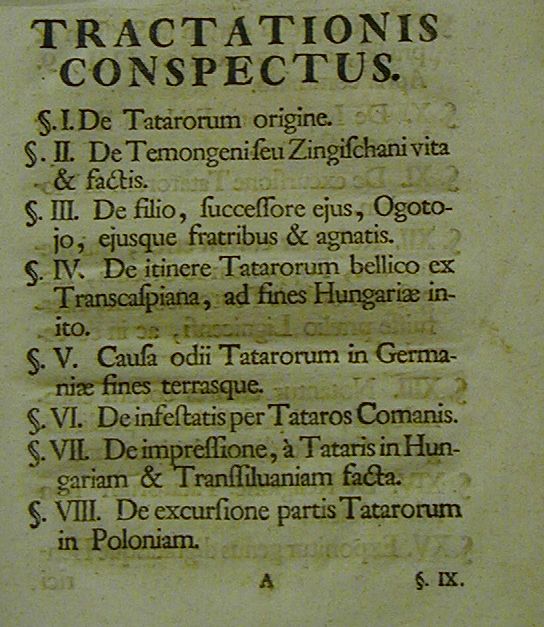 TRACTATIONIS
CONSPECTUS.
§. I. De Tatarorum origine.
§. II. De Temongeni ſeu Zingiſchani vita
& factis.
§. III. De filio, ſucceſſore ejus, Ogoto-
jo, ejusque fratribus & agnatis.
§. IV. De itinere Tatarorum bellico ex
Transcaſpiana, ad fines Hungariæ in-
ito.
§. V. Cauſa odii Tatarorum in Germa-
niæ fines terrasque.
§. VI. De infeſtatis per Tataros Comanis.
§. VII. De impreſſione, à Tataris in Hun-
gariam & Tranſſiluaniam facta.
§. VIII. De excurſione partis Tatarorum
in Poloniam.
A §. IX.